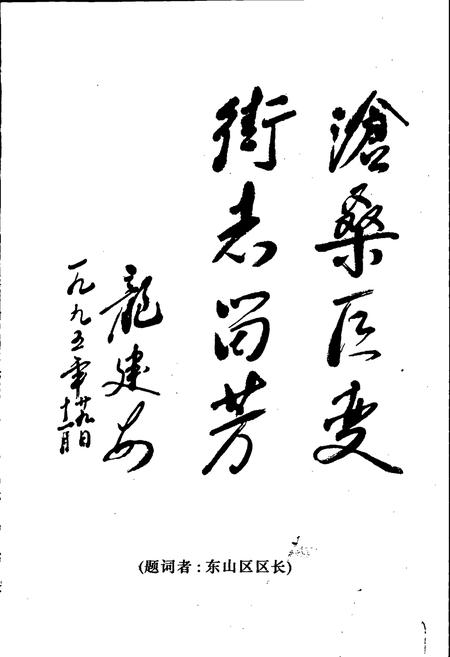 滄桑巨变
街志留芳
龍建安
一九九五年
十一月
廿九日
(题词者:东山区区长)